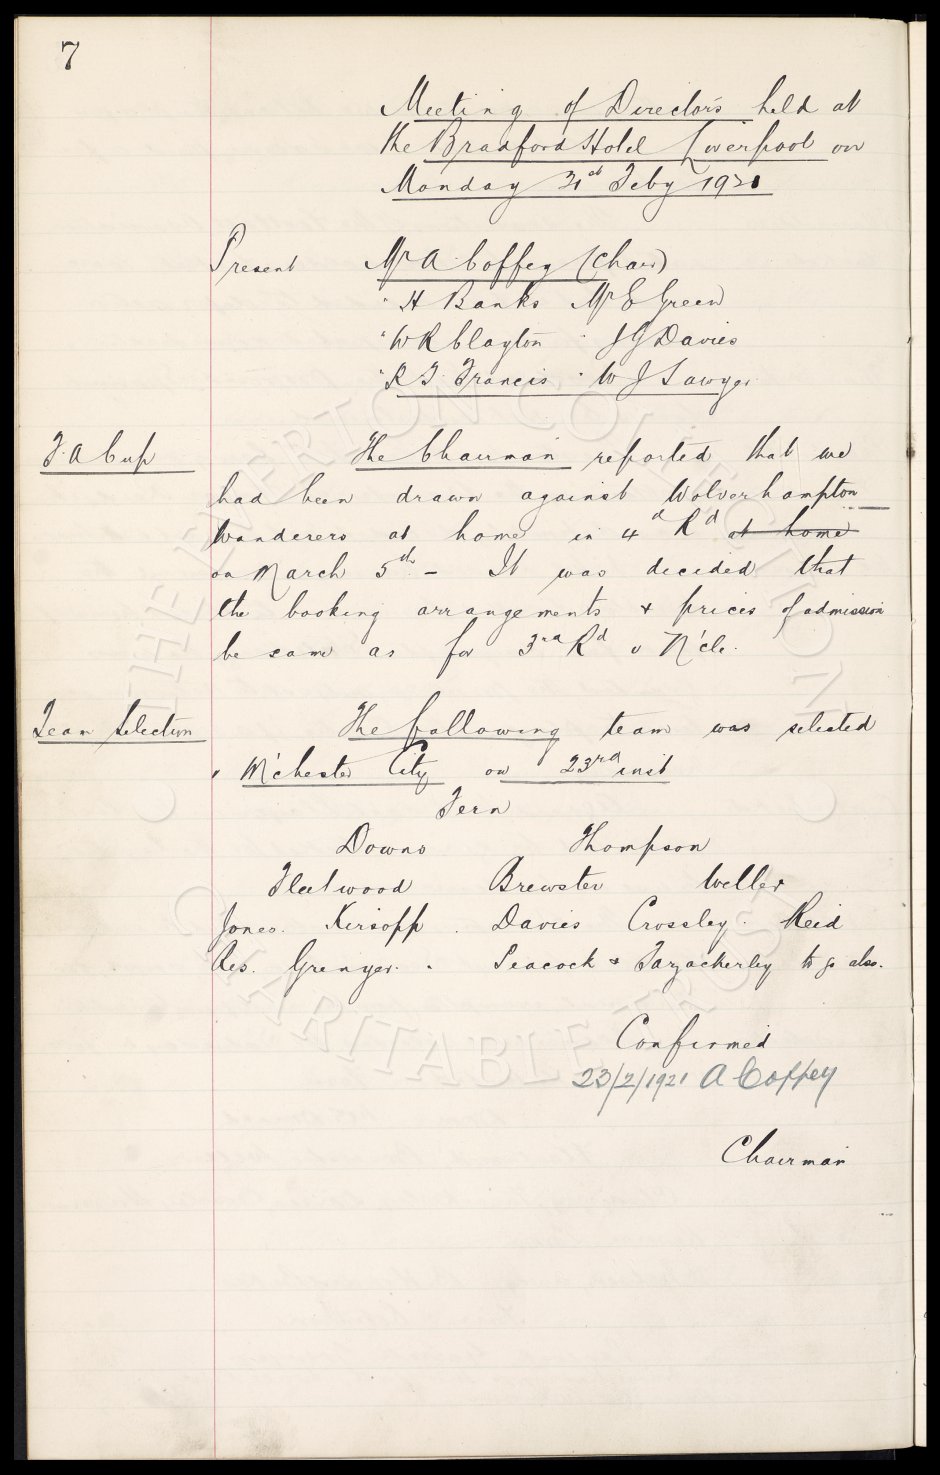 7
Meeting of Directors held at
the Bradford Hotel Liverpool on
Monday 21st Feby 1921
Present Mr A Coffey (Chair)
" H Banks Mr E Green
" W R Clayton " J G Davies
" R T Francis " W J Sawyer
F.A Cup The Chairman reported that we
had been drawn against Wolverhampton
Wanderers at home in 4d Rd at home
on March 5th - It was decided that
the booking arrangements & prices of admission
be same as for 3rd Rd v N'cle.
Team Selection The following team was selected
v M'chester City on 23rd inst
Fern
Downs Thompson
Fleetwood Brewster Weller
Jones. Kirsopp. Davies Crossley. Reid
Res. Grenyer. Peacock & Fazackerley to go also.
Confirmed
23/2/1921 A Coffey
Chairman
THE EVERTON COLLECTION
CHARITABLE TRUST